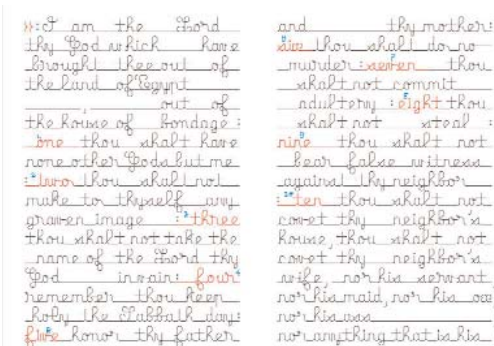 I am the Lord
thy God which have
brought thee out of
the land of Egypt
, out of
the house of bondage :
one thou shalt have
none other Gods but me
: two thou shalt not
make to thyself any
graven image : three
thou shalt not take the
name of the Lord thy
God in vain : four
remember thou keep
holy the Sabbath day :
five honor thy father
and thy mother :
six thou shalt do no
murder : seven thou
shalt not commit
adultery : eight thou
shalt not steal :
nine thou shalt not
bear false witness
against thy neighbor
: ten thou shalt not
covet thy neighbor's
house, thou shalt not
covet thy neighbor's
wife, nor his servant
nor his maid, nor his ox
nor his ass
nor anything that is his